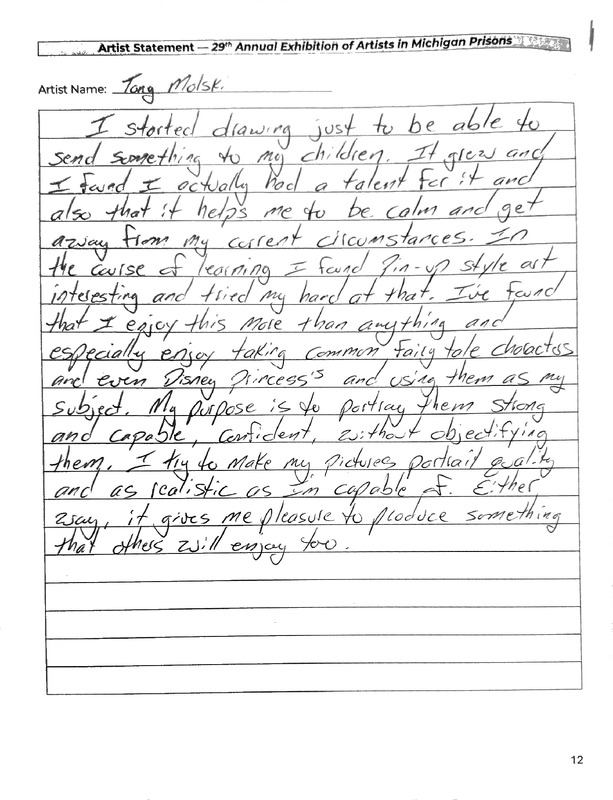 Artist Statement — 29th Annual Exhibition of Artists in Michigan Prisons
Artist Name: Tony Molski
I started drawing just to be able to
send something to my children. It grew and
I found I actually had a talent for it and
also that it helps me to be calm and get
away from my current circumstances. In
the course of learning I found Pin-up style art
interesting and tried my hard at that. I've found
that I enjoy this more than anything and
especially enjoy taking common fairy tale characters
and even Disney Princess's and using them as my
subject. My purpose is to portray them strong
and capable, confident, without objectifying
them. I try to make my pictures portrait quality
and as realistic as I'm capable of. Either
way, it gives me pleasure to produce something
that others will enjoy too.
12